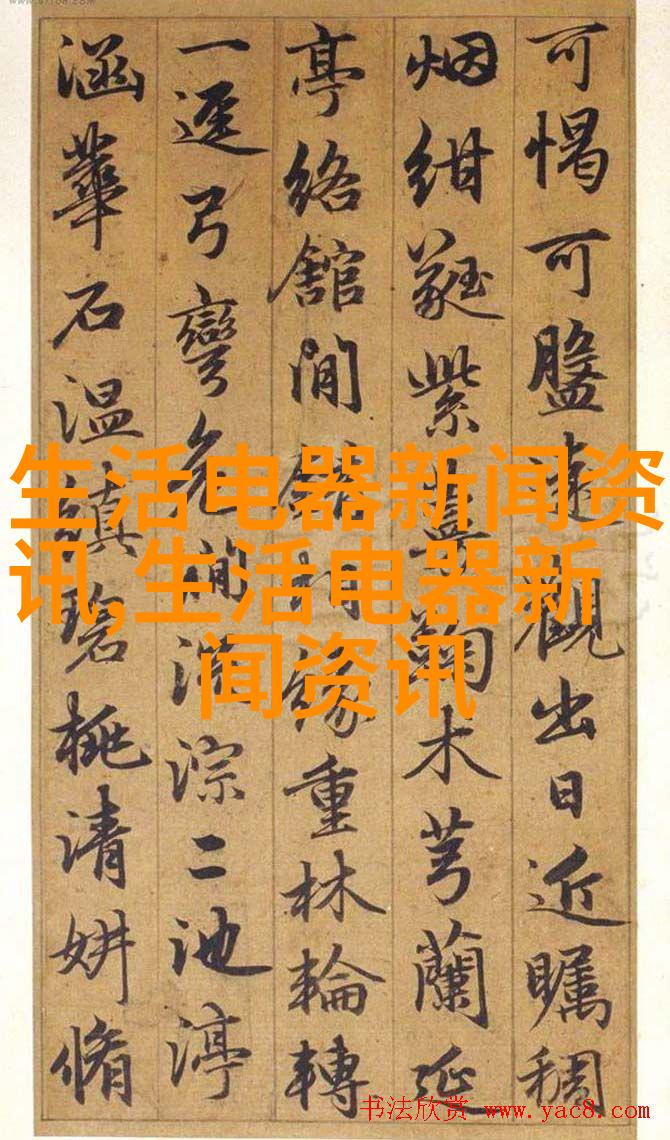 可愒可盤遠觀出日近矚稠
烟紺蕤紫菊木芎蘭延
亭絡館閒緣重林輪轉
一逕弓彎澗淙二池渟
涵華石温縝碧桃清妍脩
生活电器新闻资
讯,生活电器新
闻资讯
书法欣赏 www.yac8.com